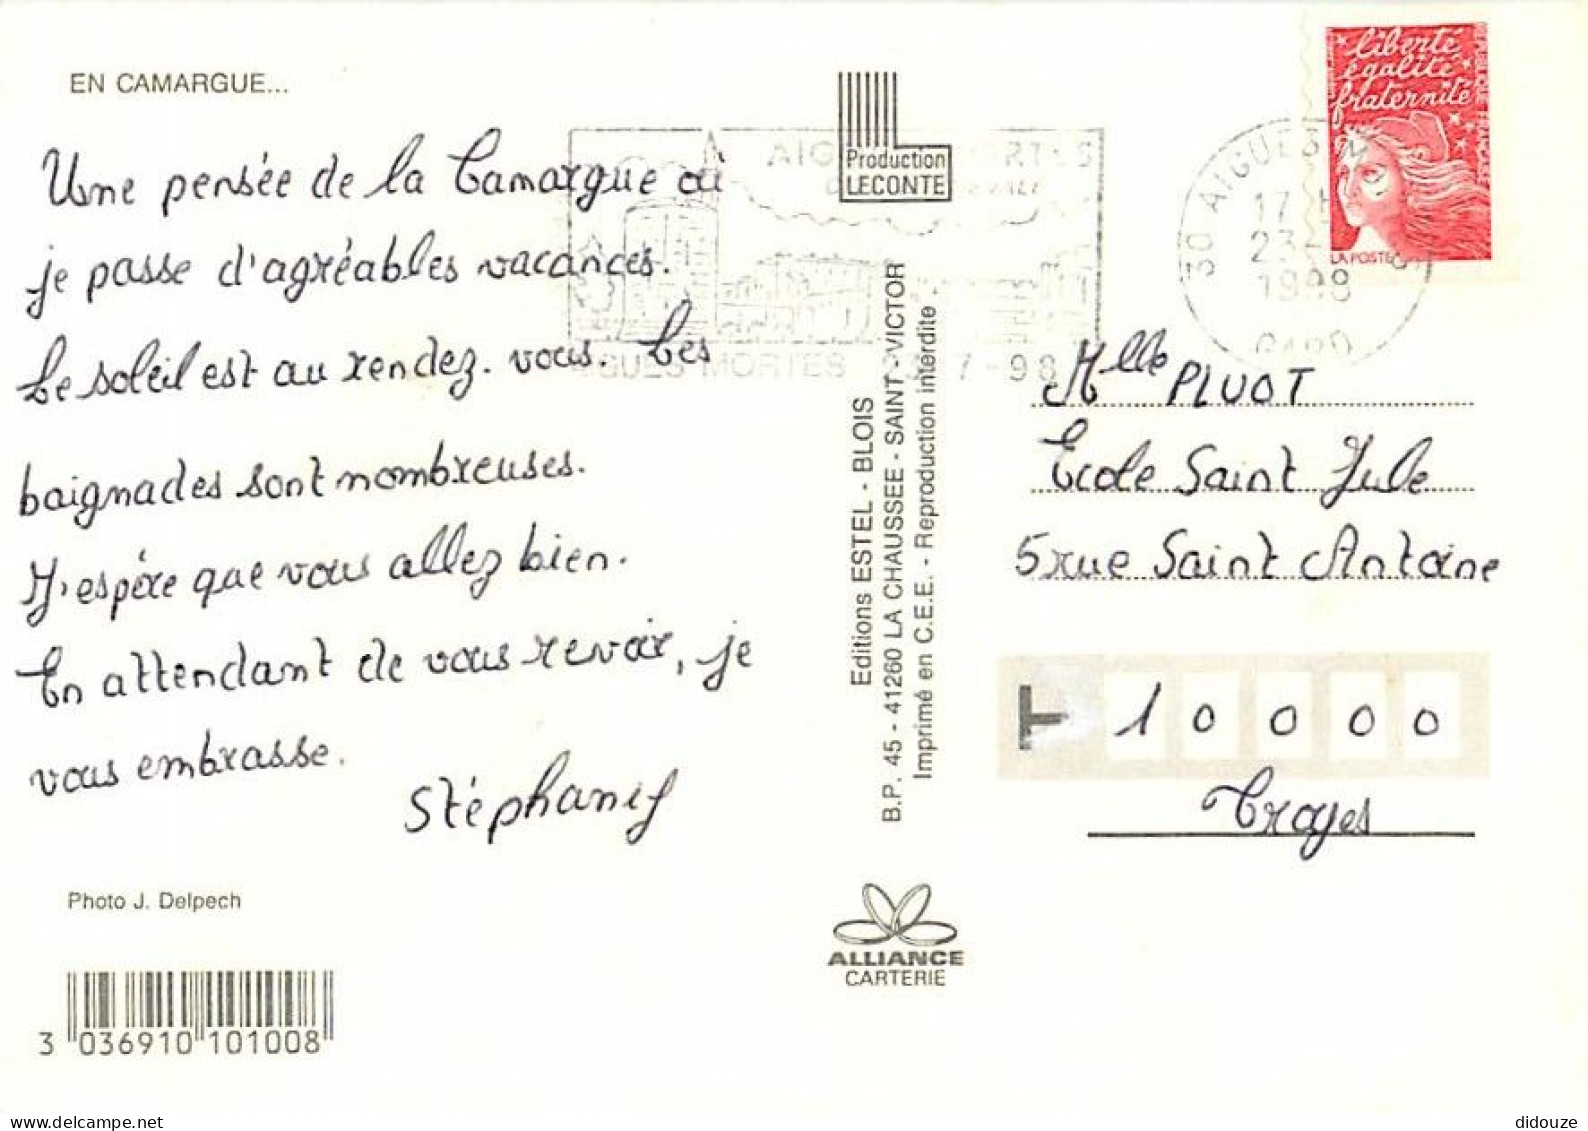 EN CAMARGUE...
Une pensée de la Camargue où
je passe d'agréables vacances.
Le soleil est au rendez-vous. Les
baignades sont nombreuses.
J'espère que vous allez bien.
En attendant de vous revoir, je
vous embrasse.
Stéphanie
Photo J. Delpech
3 036910 101008
Production
LECONTE
Editions ESTEL - BLOIS
B.P. 45 - 41260 LA CHAUSSEE - SAINT-VICTOR
Imprimé en C.E.E. - Reproduction interdite
ALLIANCE
CARTERIE
liberté
égalité
fraternité
REPUBLIQUE FRANCAISE
LA POSTE
30 AIGUES
17 H
23
1998
GARD
MORTES
7-98
Mlle PLUOT
Ecole Saint Jule
5 rue Saint Antoine
T 10000
Troyes
didouze